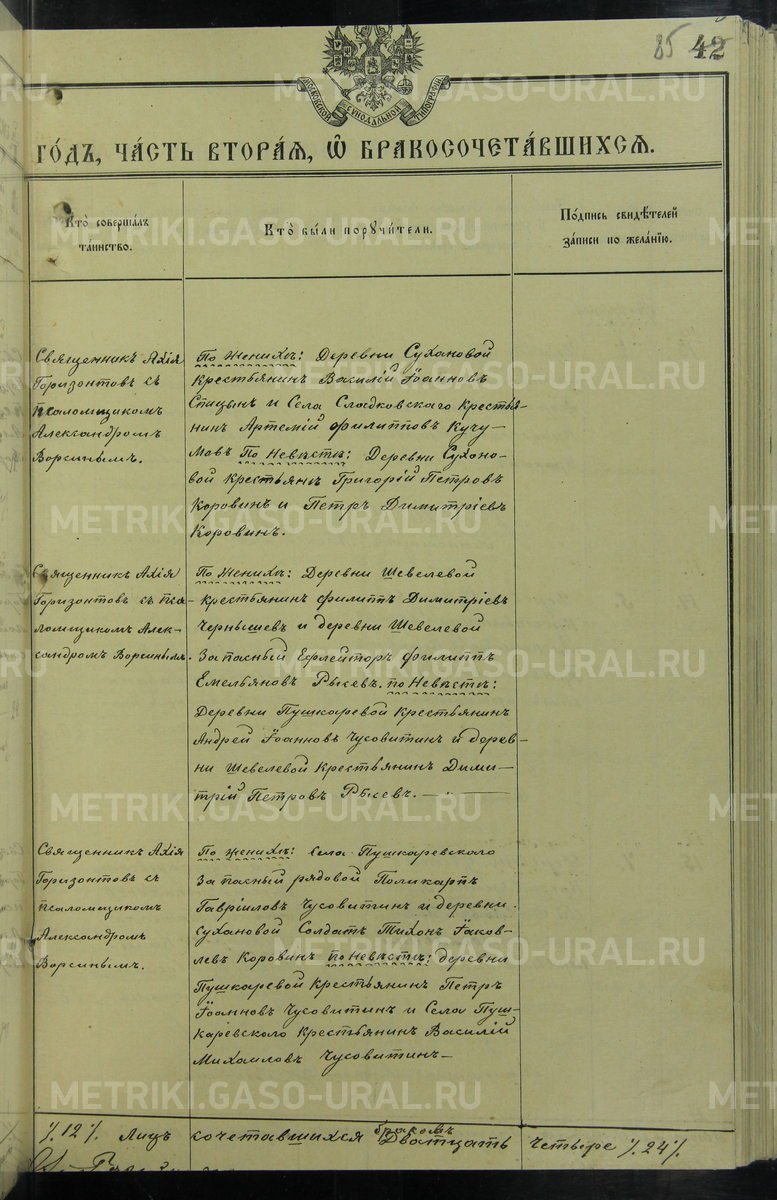 85 42
МОСКОВСКОЙ СѴНОДАЛЬНОЙ ТИПОГРАФІИ
ГО́ДЪ, ЧА́СТЬ ВТОРА́Ѧ, Ѽ БРАКОСОЧЕТА́ВШИХСѦ.
Кто̀ совершалъ
та́инство.
Кто̀ бы́ли порꙋчи́тели.
По́дпись свидѣ́телей
за́писи по жела́нїю.
Священникъ Ахія
Горизонтовъ съ
псаломщикомъ
Александромъ
Ворсинымъ.
По Женихѣ: Деревни Сухановой
крестьянинъ Василій Іоанновъ
Спицынъ и Села Сладковскаго крестья-
нинъ Артемій Филипповъ Кучу-
мовъ По Невѣстѣ: Деревни Сухано-
вой крестьяне Григорій Петровъ
Коровинъ и Петръ Димитріевъ
Коровинъ.
Священникъ Ахія
Горизонтовъ съ пса-
ломщикомъ Алек-
сандромъ Ворсинымъ.
По Женихѣ: Деревни Шевелевой
крестьянинъ Филиппъ Димитріевъ
Чернышевъ и деревни Шевелевой
Запасный Ефлейторъ Филиппъ
Емельяновъ Рысевъ. по Невѣстѣ:
Деревни Пушкаревой Крестьянинъ
Андрей Іоанновъ Чусовитинъ и дерев-
ни Шевелевой крестьянинъ Дими-
трій Петровъ Рысевъ.
Священникъ Ахія
Горизонтовъ съ
псаломщикомъ
Александромъ
Ворсинымъ.
По женихѣ: Села Пушкаревскаго
Запасный рядовой Поликарпъ
Гавріиловъ Чусовитинъ и деревни
Сухановой Солдатъ Тихонъ Іаков-
левъ Коровинъ по Невѣстѣ: деревни
Пушкаревой крестьянинъ Петръ
Іоанновъ Чусовитинъ и Села Пуш-
каревскаго Крестьянинъ Василій
Михаиловъ Чусовитинъ
%12% Лицъ сочетавшихся бракомъ Двадцать четыре %24%
METRIKI.GASO-URAL.RU